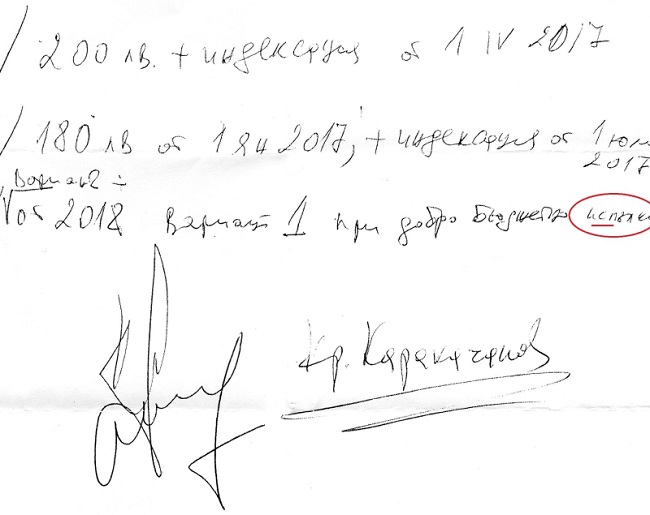 / 200 лв. + индексация от 1 IV 2017
/ 180 лв от 1 ян 2017, + индексация от 1 юли
2017
Вариант 2 -
V от 2018 Вариант 1 при добро бюджетно
Кр. Каракачанов